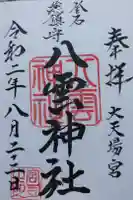 奉拝
大天場宮
釜石
総鎮守
八雲神社
令和二年八月二十二日